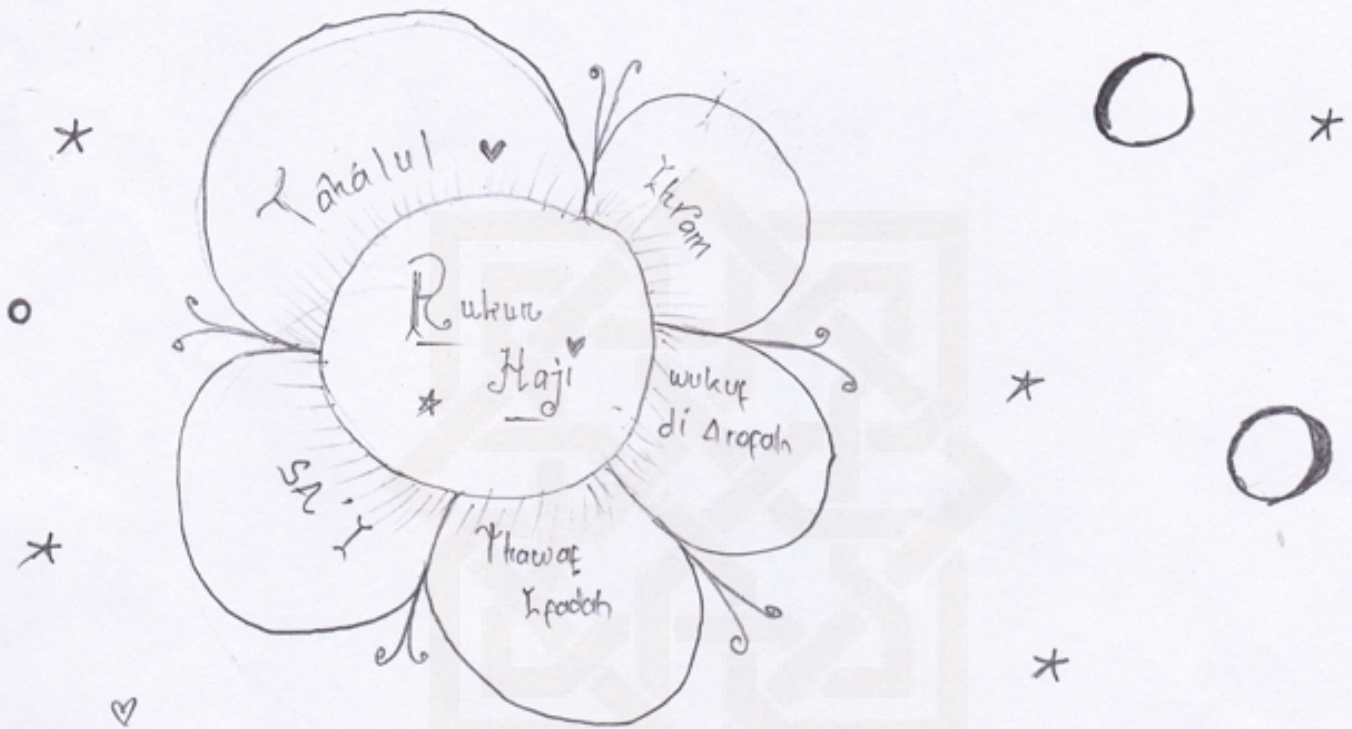 Rukun
Haji
Tahálul
Ihram
wukuf
di Arofah
Thawaf
Ifadah
SA'I